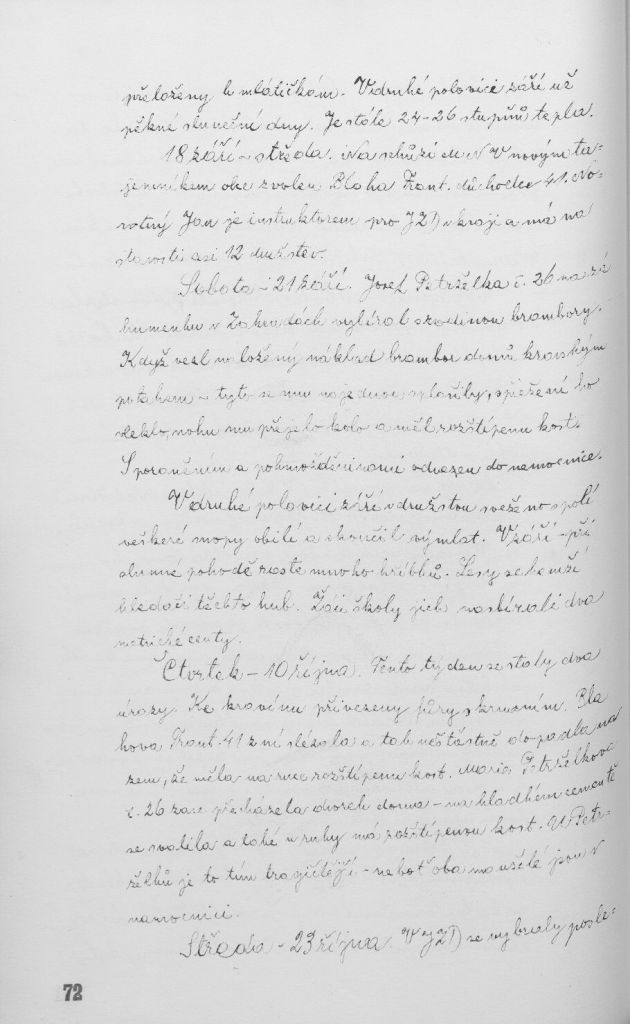 přeloženy k mlátičkám. V druhé polovici září už
pěkné sluneční dny. Je stále 24-26 stupňů tepla.
18 září - středa. Na schůzi M N V novým ta-
jemníkem obce zvolen Bloha Frant. důchodce 41. No-
votný Jan je instruktorem pro JZD v kraji a má na
starosti asi 12 družstev.
Sobota - 21 září. Josef Petrželka č. 26 na zá
humenku v Zahradách vybíral s rodinou brambory.
Když vezl naložený náklad brambor domů kravským
potahem - tyto se mu najednou splašily, spřežení ho
vleklo, nohu mu přejelo kolo a měl rozštípenu kost.
S poraněním a pohmožděninami odvezen do nemocnice.
V druhé polovici září v družstvu sveženo s polí
veškeré mopy obilí a skončil výmlat. V září - při
slunné pohodě roste mnoho hříbků. Lesy se hemží
hledači těchto hub. Žáci školy jich nasbírali dva
metrické centy.
Čtvrtek - 10 října. Tento týden se staly dva
úrazy. Ke kravínu přivezeny fůry s krmením. Bla
hova Frant. 41 z ní slézala a tak nešťastně dopadla na
zem, že měla na ruce rozštípenu kost. Marie Petrželkova
č. 26 zase přecházela dvorek doma - na hladkém cementě
se svalila a také u ruky má rozštípenou kost. U Petr-
želků je to tím tragičtější - neboť oba manželé jsou v
nemocnici.
Středa - 23 října. V JZD se vybraly posle-
72